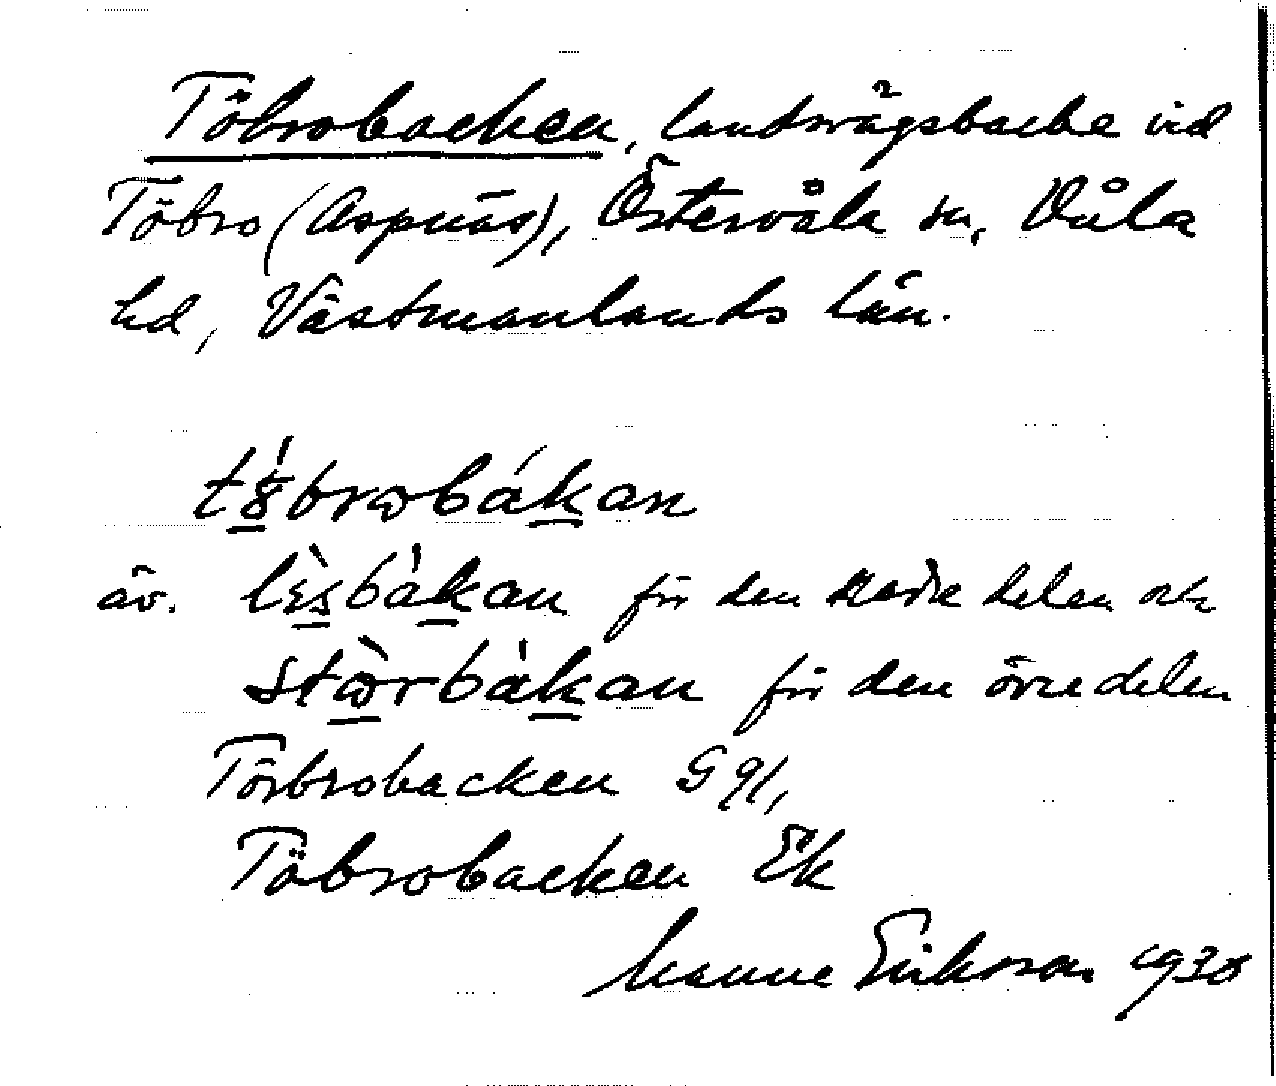 Töbrobacken, landsvägsbacke vid
Töbro (Aspnäs), Östervåla sn, Våla
hd, Västmanlands län.
äv. för den nedre delen och
för den övre delen
Törbrobacken G 91,
Töbrobacken Ek
Manne Eriksson 1930